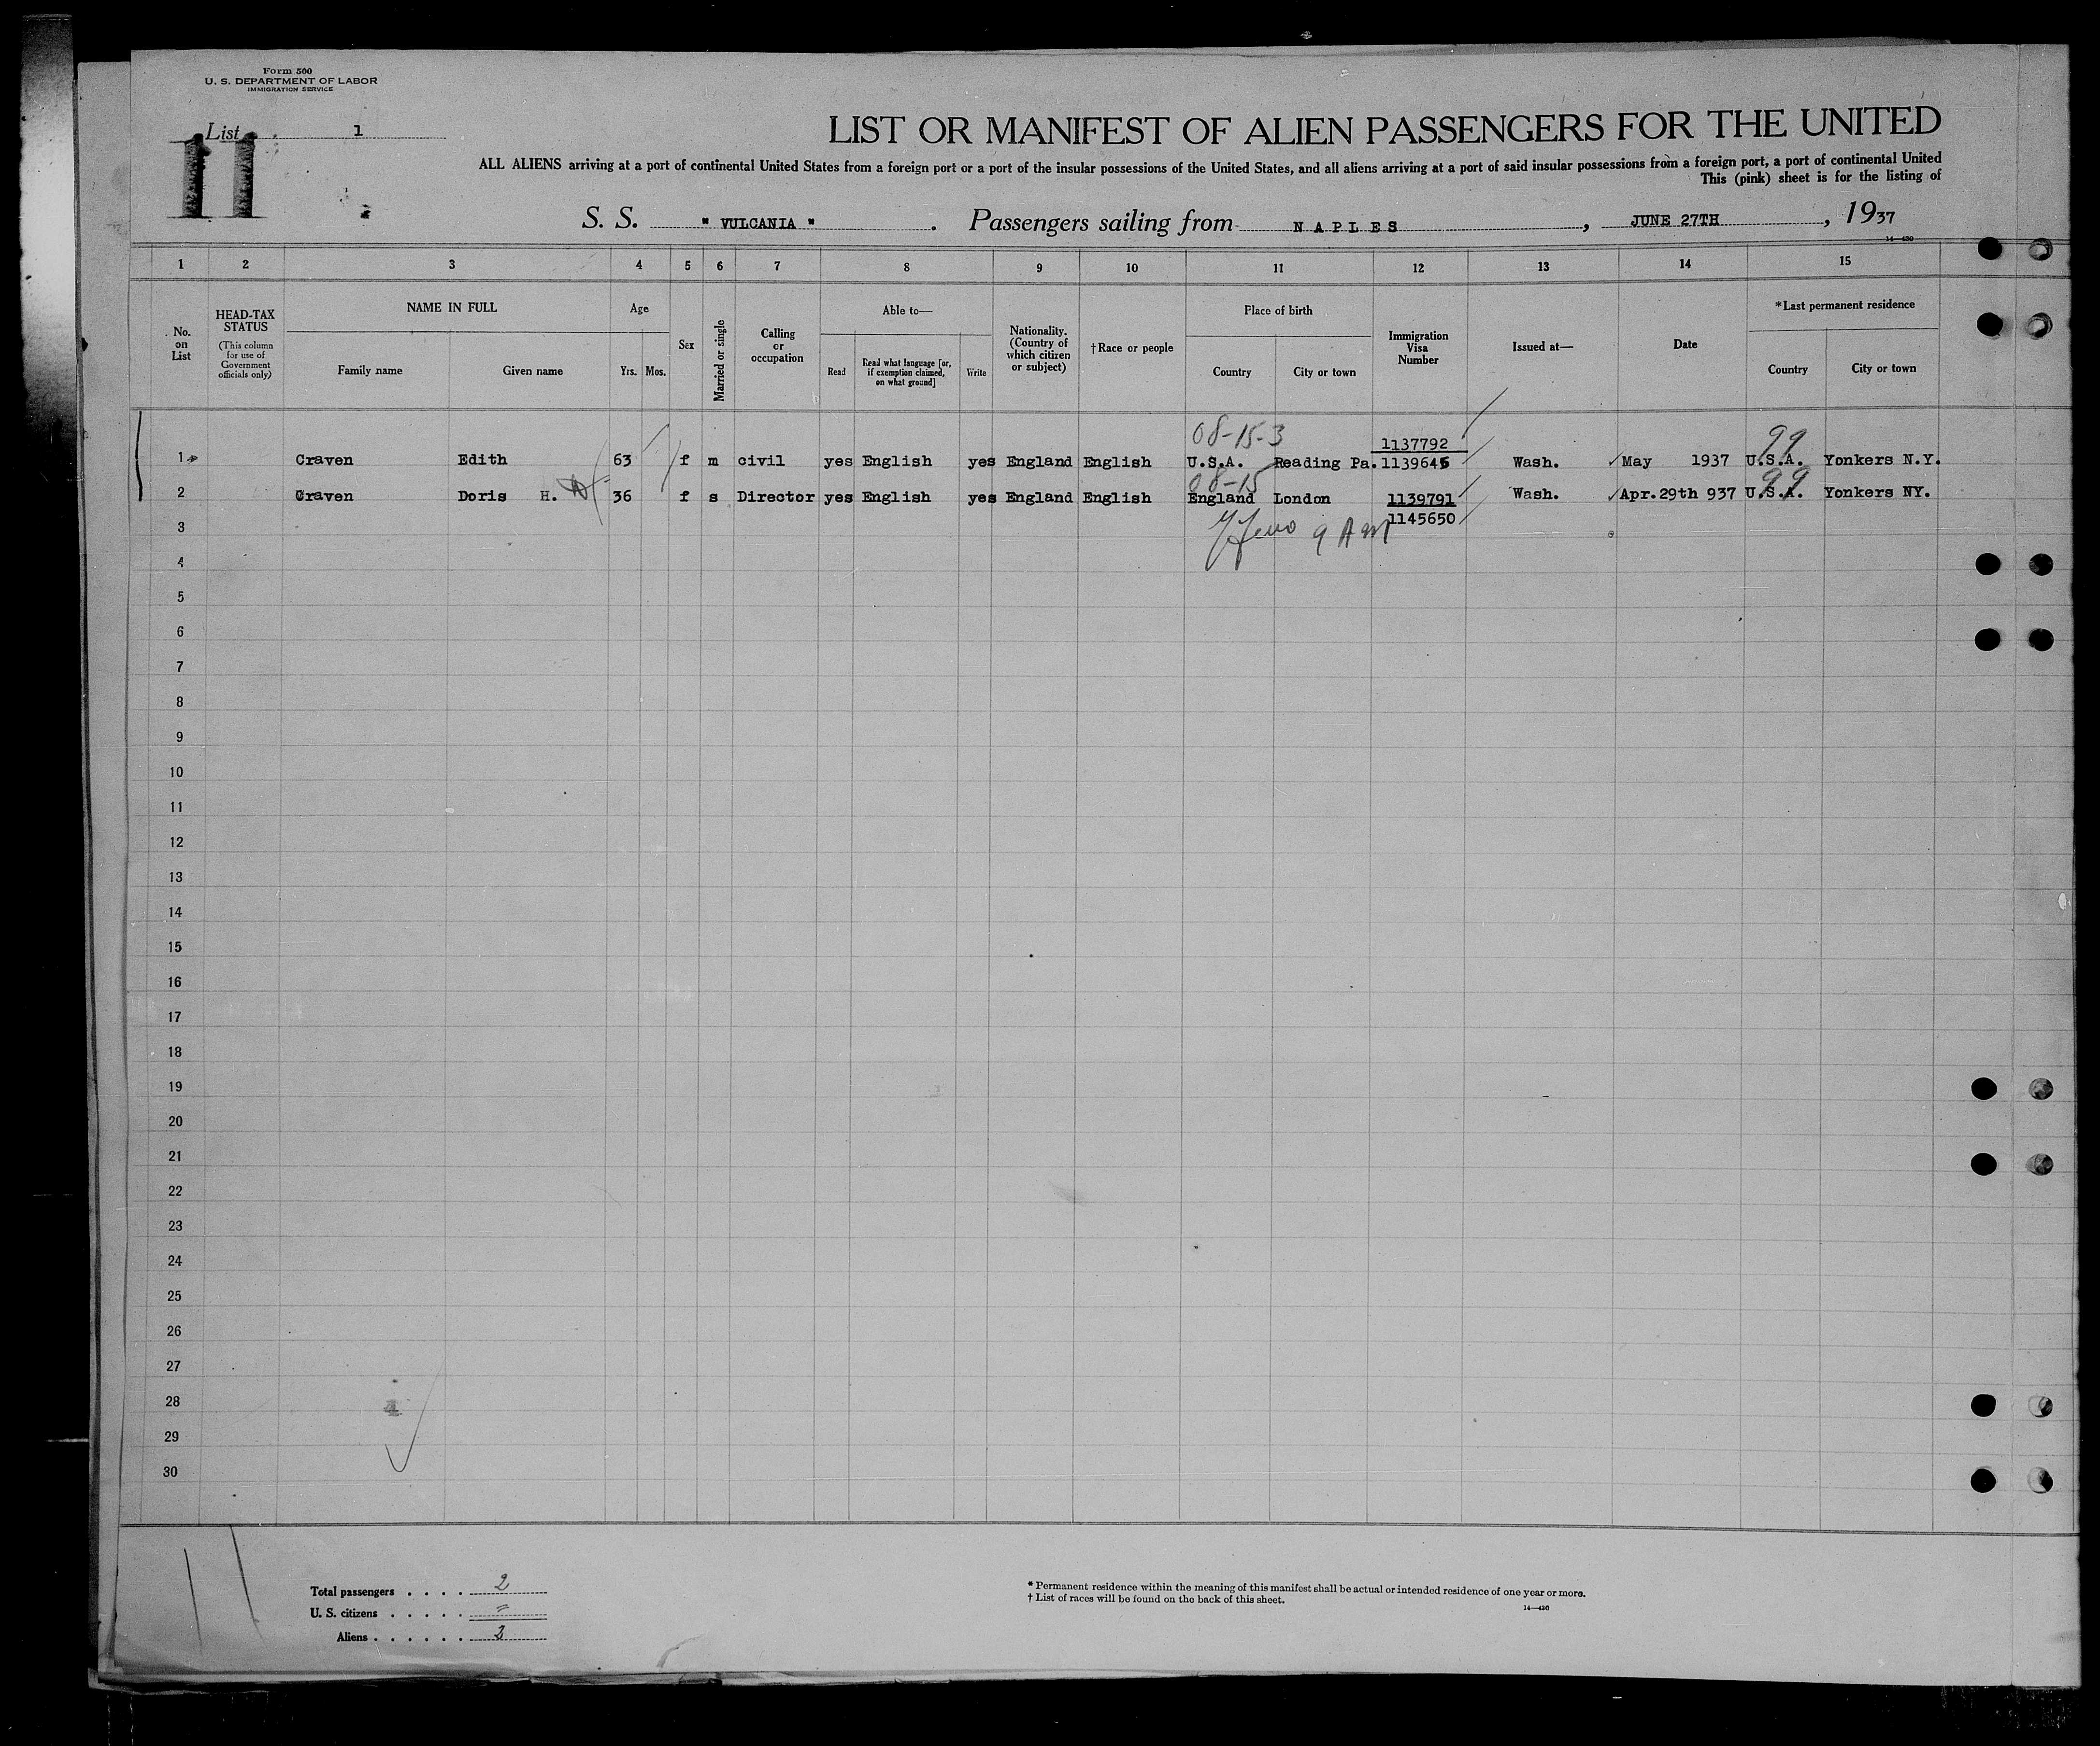 Form 500
U. S. DEPARTMENT OF LABOR
IMMIGRATION SERVICE
List 1
11
LIST OR MANIFEST OF ALIEN PASSENGERS FOR THE UNITED
ALL ALIENS arriving at a port of continental United States from a foreign port or a port of the insular possessions of the United States, and all aliens arriving at a port of said insular possessions from a foreign port, a port of continental United
This (pink) sheet is for the listing of
S. S. " VULCANIA " . Passengers sailing from NAPLES , JUNE 27TH , 1937
14—430
1 2 3 4 5 6 7 8 9 10 11 12 13 14 15
No. on List
HEAD-TAX STATUS
(This column for use of Government officials only)
NAME IN FULL
Family name Given name
Age
Yrs. Mos.
Sex
Married or single
Calling or occupation
Able to—
Read
Read what language [or, if exemption claimed, on what ground]
Write
Nationality. (Country of which citizen or subject)
†Race or people
Place of birth
Country City or town
Immigration Visa Number
Issued at—
Date
*Last permanent residence
Country City or town
08-15-3 1137792 99
1 Craven Edith 63 f m civil yes English yes England English U.S.A. Reading Pa. 1139645 Wash. May 1937 U.S.A. Yonkers N.Y.
08-15 99
2 Craven Doris H. 36 f s Director yes English yes England English England London 1139791 Wash. Apr.29th 937 U.S.A. Yonkers NY.
3 9 AM 1145650
4
5
6
7
8
9
10
11
12
13
14
15
16
17
18
19
20
21
22
23
24
25
26
27
28
29
30
Total passengers . . . . 2
U. S. citizens . . . . . =
Aliens . . . . . . 2
* Permanent residence within the meaning of this manifest shall be actual or intended residence of one year or more.
† List of races will be found on the back of this sheet.
14—430